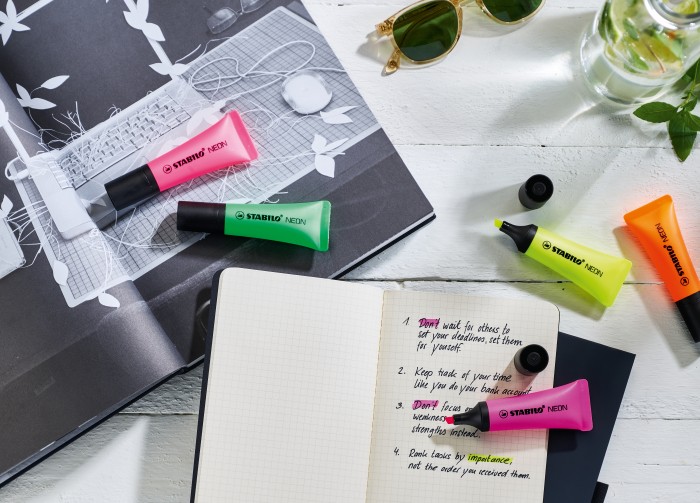 STABILO® NEON
STABILO® NEON
STABILO® NEON
STABILO® NEON
1. Don't wait for others to
set your deadlines, set them
for yourself.
2. Keep track of your time
like you do your bank account.
3. Don't focus on
weakness
strengths instead.
4. Rank tasks by importance,
not the order you received them.
STABILO® NEON